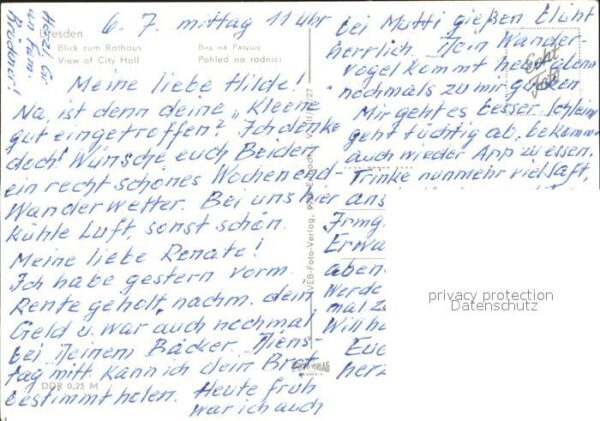 6. 7. mittag 11 Uhr
Dresden
Blick zum Rathaus
View of City Hall
Вид на Ратушу
Pohled na radnici
Herzl. Gr.
an Fam.
Meine liebe Hilde!
Na, ist denn deine „Kleine
gut eingetroffen? Ich denke
doch! Wünsche euch Beiden
ein recht schönes Wochenend-
Wanderwetter. Bei uns hier
kühle Luft, sonst schön.
Meine liebe Renate!
Ich habe gestern vorm.
Rente geholt, nachm. dein
Geld u. war auch nochmal
bei Deinem Bäcker. Diens-
tag mitt. kann ich dein Brot
bestimmt holen. Heute früh
war ich auch
bei Mutti gießen. Blüht
herrlich. Dein Wander-
vogel kommt heute abend
nochmals zu mir
Mir geht es besser. Schleim
geht tüchtig ab, bekomme
auch wieder App zu essen.
Trinke nunmehr viel Saft,
ans
Irmg.
Erwa
aben
Werde
mal z
Will ha
Eue
herz
Echt
Foto
VEB-Foto-Verlag
DDR 0,25 M
privacy protection
Datenschutz